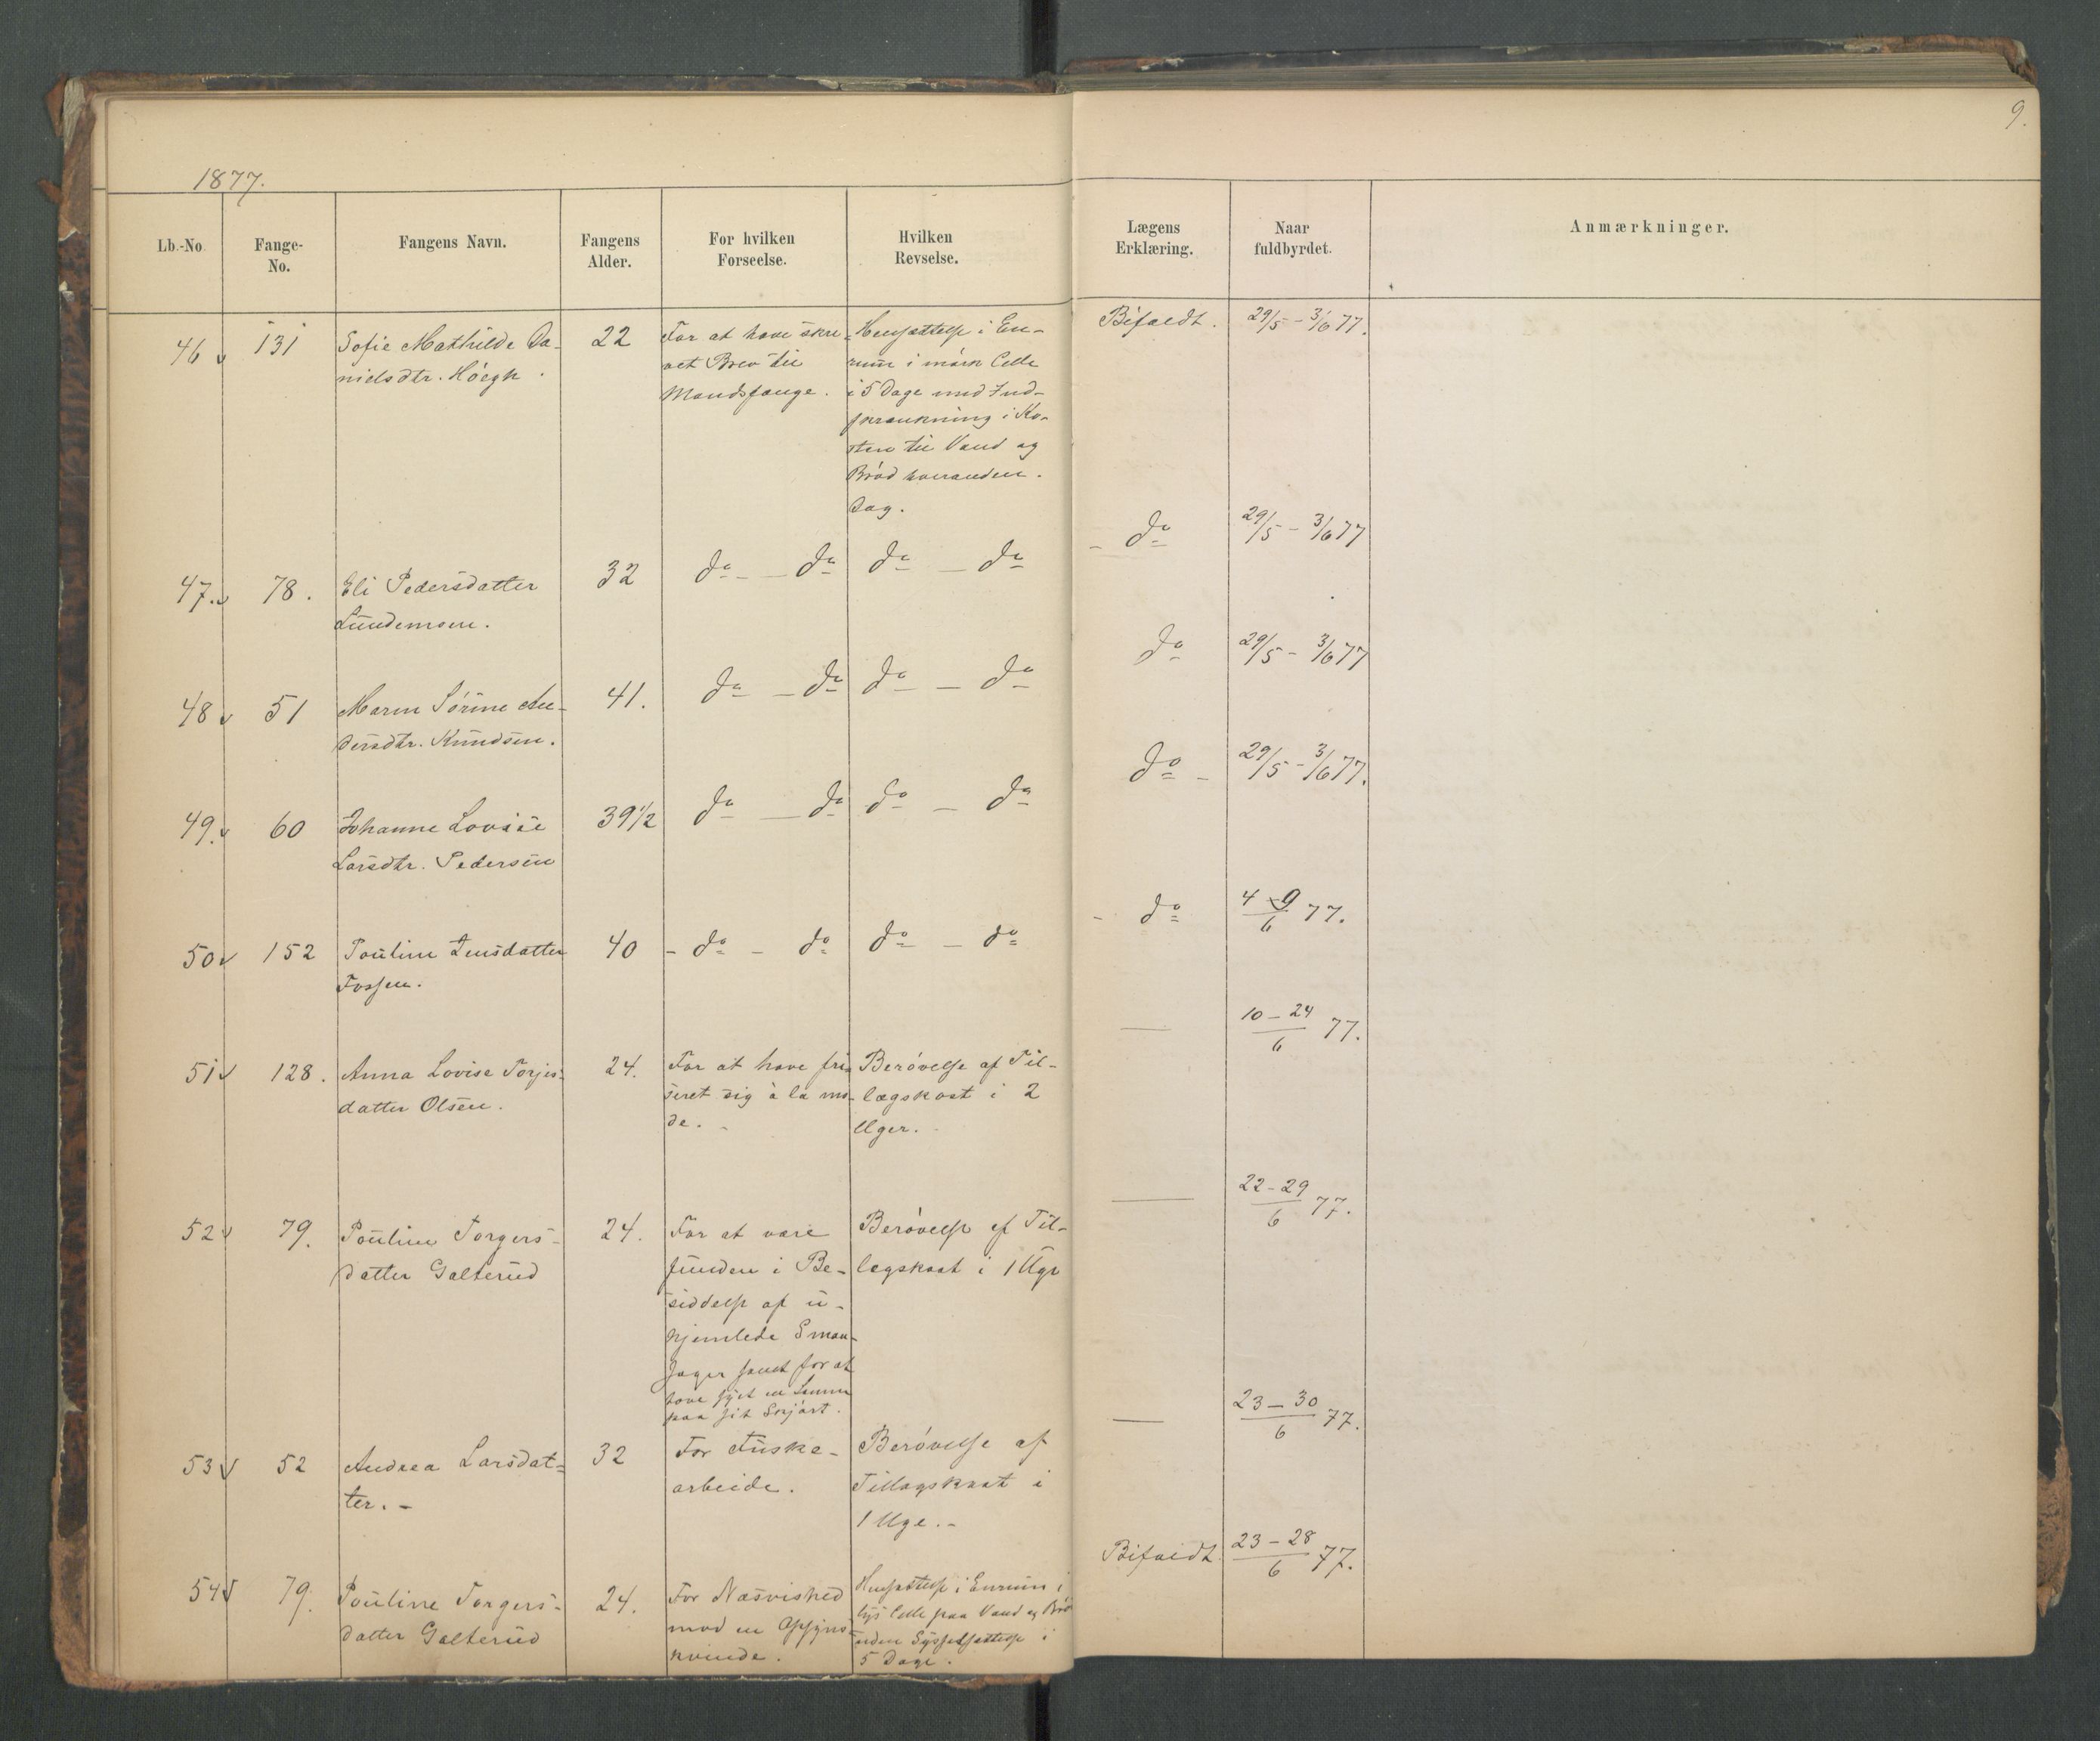 9.
1877.
Lb.-No. Fange-No. Fangens Navn. Fangens Alder. For hvilken Forseelse. Hvilken Revselse. Lægens Erklæring. Naar fuldbyrdet. Anmærkninger.
46 131 Sofie Mathilde Da- 22 For at have skre- Hensættelse i En- Bifaldt. 29/5 - 3/6 77.
nielsdtr. Høegh. vet Brev til rum i mørk Celle
Mandsfange. i 5 Dage med Ind-
skrænkning i Ko-
sten til Vand og
Brød hveranden
Dag.
47. 78. Eli Pedersdatter 32 do - do do - do - do 29/5 - 3/6 77
Lundemoen.
48 51 Maren Sørine An- 41. do - do do - do do 29/5 - 3/6 77
dersdtr. Knudsen.
49. 60 Johanne Lovise 39 1/2 do - do do - do do - 29/5 - 3/6 77.
Larsdtr. Pedersen
50 152 Pouline Jensdatter 40 - do - do do - do - do 4-9/6 77.
Fossen.
51 128. Anna Lovise Torjes- 24. For at have fri- Berøvelse af Til- — 10-24/6 77.
datter Olsen. seret sig à la mo- lægskost i 2
de. Uger.
52 79. Pouline Torgers- 24. For at være Berøvelse af Til- — 22-29/6 77.
datter Galterud funden i Be- lægskost i 1 Uge
siddelse af u-
hjemlede Smaa-
sager samt for at
have syet en Lomme
paa sit Skjørt.
53 52 Andrea Larsdat- 32 For Fuske- Berøvelse af — 23-30/6 77.
ter. - arbeide. Tillægskost i
1 Uge. -
54 79. Pouline Torgers- 24. For Næsvished Hensættelse i Enrum i Bifaldt. 23-28/6 77.
datter Galterud mod en Opsyns- lys Celle paa Vand og Brød
kvinde. uden Sysselsættelse i
5 Dage.